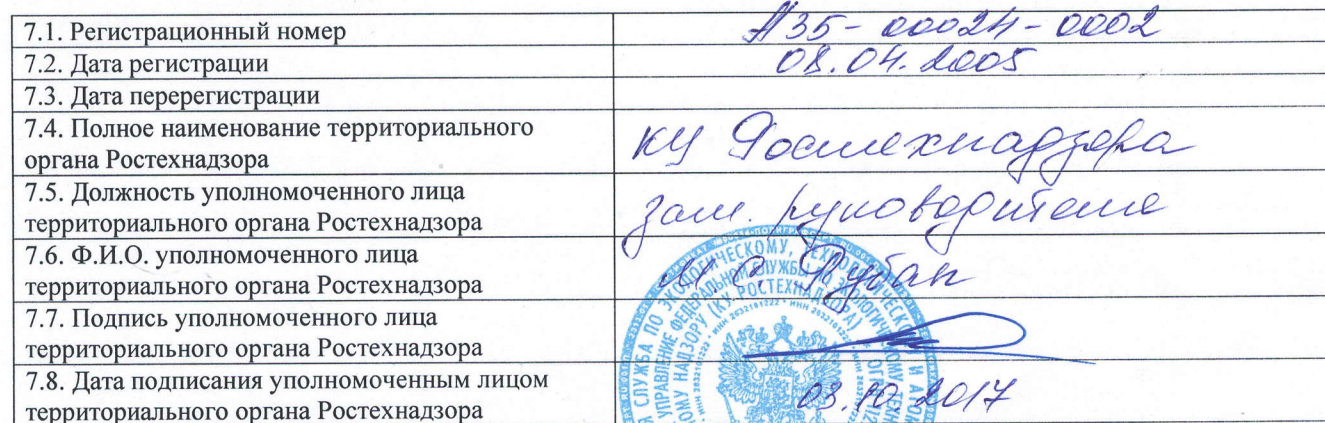 7.1. Регистрационный номер А35-00024-0002
7.2. Дата регистрации 08.04.2005
7.3. Дата перерегистрации
7.4. Полное наименование территориального
органа Ростехнадзора КУ Ростехнадзора
7.5. Должность уполномоченного лица
территориального органа Ростехнадзора зам. руководителя
7.6. Ф.И.О. уполномоченного лица
территориального органа Ростехнадзора
7.7. Подпись уполномоченного лица
территориального органа Ростехнадзора
7.8. Дата подписания уполномоченным лицом
территориального органа Ростехнадзора 03.10.2017